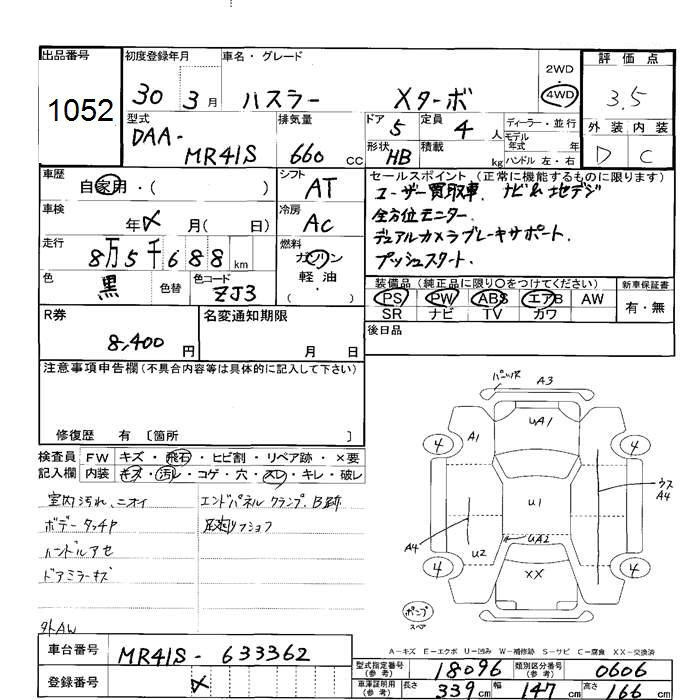 出品番号
1052
初度登録年月
30 3月
車名・グレード
ハスラー Xターボ
2WD
・
4WD
評価点
3.5
外装 内装
D C
型式
DAA-
MR41S
排気量
660 cc
ドア 5
定員 4 人
形状 HB
積載 kg
ディーラー・並行
モデル
年式 年
ハンドル 左・右
車歴
自家用・( )
シフト
AT
車検
年 月( 日)
冷房
AC
走行
8万5千688km
燃料
ガソリン
・
軽油
( )
色
黒
色替
色コード
ZJ3
セールスポイント(正常に機能するものに限ります)
ユーザー買取車. ナビ&地デジ
全方位モニター.
デュアルカメラブレーキサポート.
プッシュスタート.
装備品(純正品に限り○をつけてください)
PS PW ABS エアB AW
SR ナビ TV カワ
新車保証書
有・無
後日品
R券
8,400 円
名変通知期限
月 日
注意事項申告欄(不具合内容等は具体的に記入して下さい)
修復歴 有 〔箇所 〕
検査員
記入欄
FW キズ・飛石・ヒビ割・リペア跡・×要
内装 キズ・汚レ・コゲ・穴・スレ・キレ・破レ
室内汚れ、ニオイ
ボデータッチP
ハンドルアセ
ドアミラーキズ
外AW
エンドパネル クランプ、B跡
A3
A1
UA1
U1
UA2
XX
A4
U2
ウス
A4
4
4
4
4
スペア
A-キズ E-エクボ U-凹み W-補修跡 S-サビ C-腐食 XX-交換済
車台番号
MR41S-633362
登録番号
型式指定番号
(参考)
18096
類別区分番号
(参考)
0606
車庫証明用
(参考)
長さ 339cm 幅 147cm 高さ 166cm